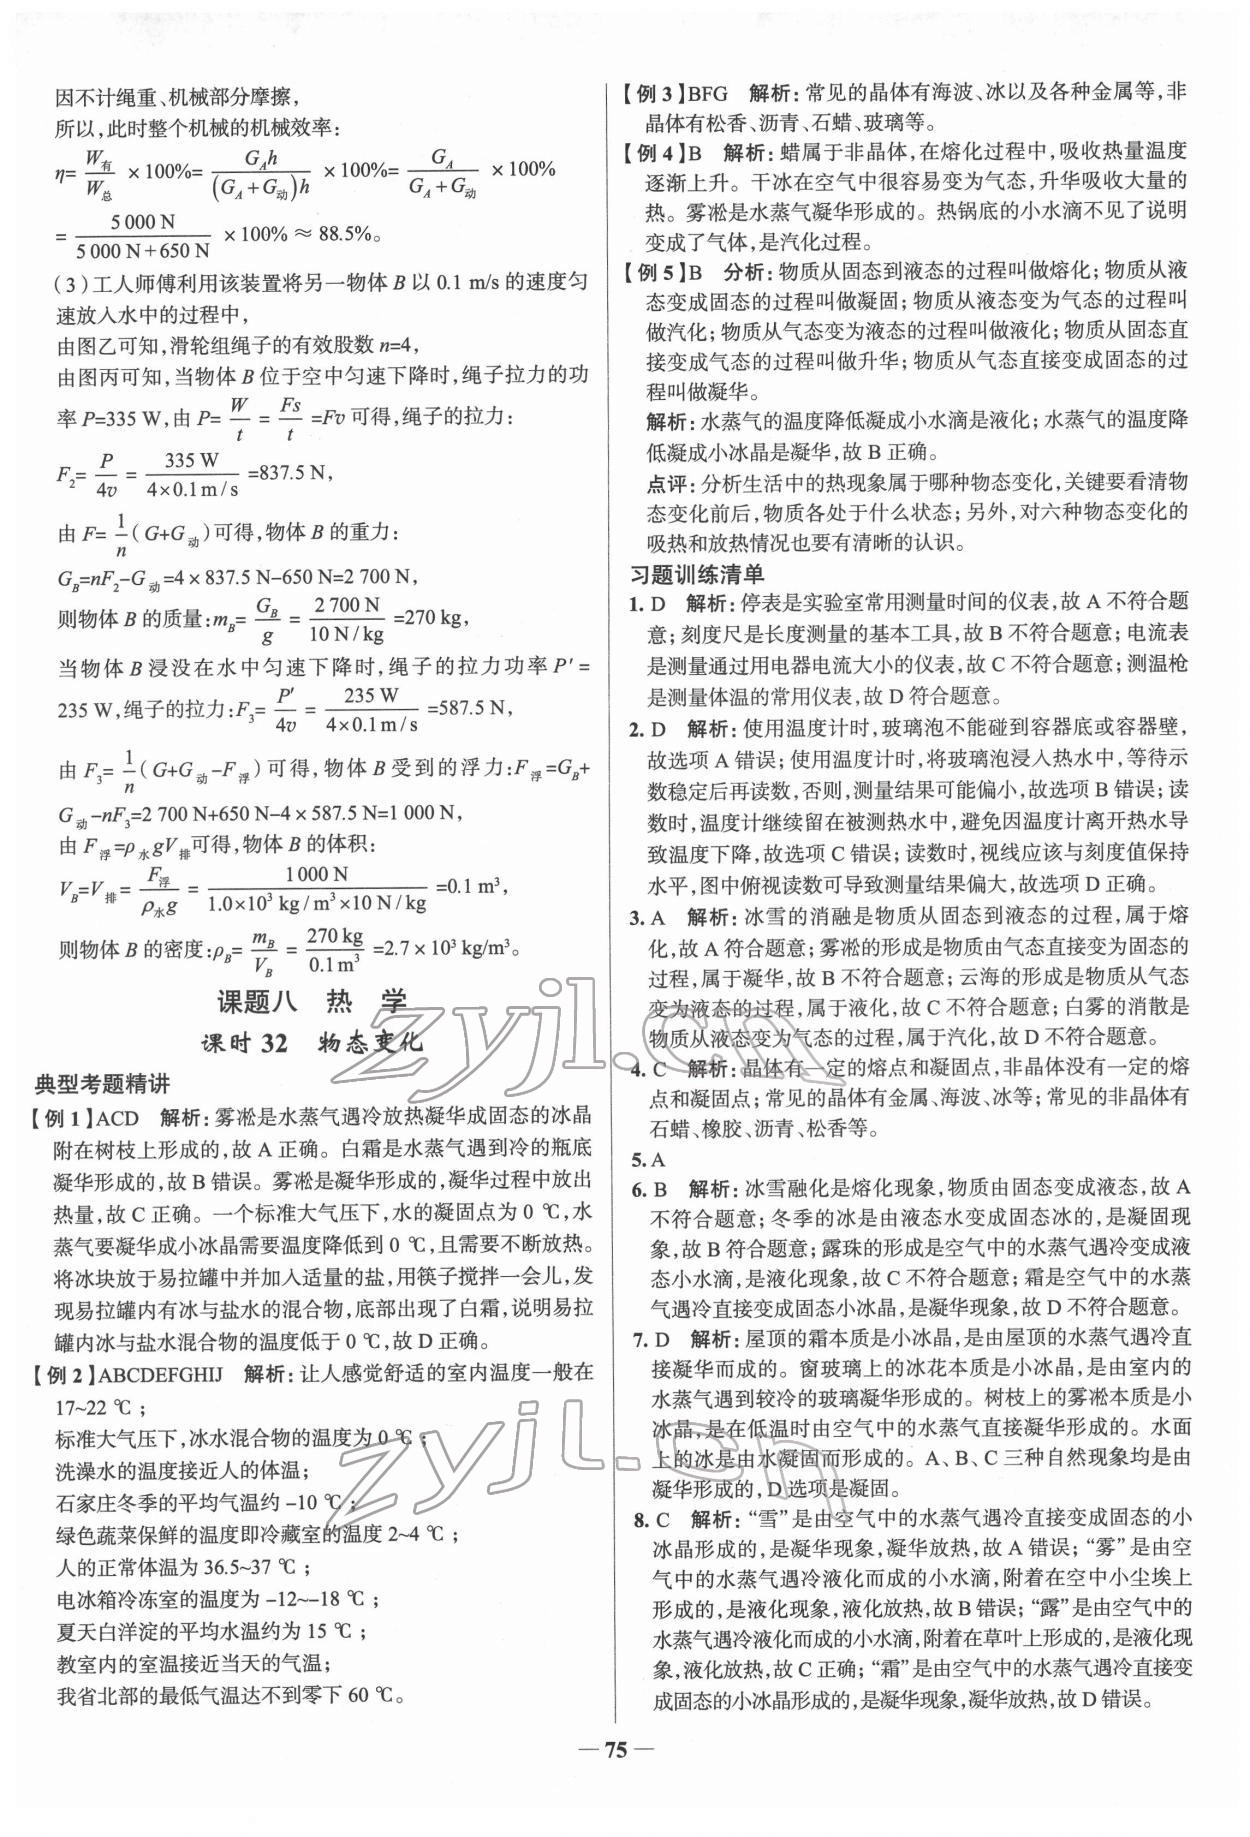 因不计绳重、机械部分摩擦，
所以，此时整个机械的机械效率：
η= W有/W总 ×100%= G_A h/(G_A+G动)h ×100%= G_A/(G_A+G动) ×100%
= 5 000 N/(5 000 N+650 N) ×100% ≈ 88.5%。
（3）工人师傅利用该装置将另一物体 B 以 0.1 m/s 的速度匀
速放入水中的过程中，
由图乙可知，滑轮组绳子的有效股数 n=4，
由图丙可知，当物体 B 位于空中匀速下降时，绳子拉力的功
率 P=335 W，由 P= W/t = Fs/t =Fv 可得，绳子的拉力：
F₂= P/4v = 335 W/(4×0.1 m/s) =837.5 N，
由 F= 1/n (G+G动)可得，物体 B 的重力：
G_B=nF₂-G动=4×837.5 N-650 N=2 700 N，
则物体 B 的质量：m_B= G_B/g = 2 700 N/(10 N/kg) =270 kg，
当物体 B 浸没在水中匀速下降时，绳子的拉力功率 P′=
235 W，绳子的拉力：F₃= P′/4v = 235 W/(4×0.1 m/s) =587.5 N，
由 F₃= 1/n (G+G动-F浮)可得，物体 B 受到的浮力：F浮=G_B+
G动-nF₃=2 700 N+650 N-4×587.5 N=1 000 N，
由 F浮=ρ水gV排可得，物体 B 的体积：
V_B=V排= F浮/ρ水g = 1 000 N/(1.0×10³ kg/m³×10 N/kg) =0.1 m³，
则物体 B 的密度：ρ_B= m_B/V_B = 270 kg/0.1 m³ =2.7×10³ kg/m³。
课题八 热 学
课时 32 物态变化
典型考题精讲
【例 1】ACD 解析：雾凇是水蒸气遇冷放热凝华成固态的冰晶
附在树枝上形成的，故 A 正确。白霜是水蒸气遇到冷的瓶底
凝华形成的，故 B 错误。雾凇是凝华形成的，凝华过程中放出
热量，故 C 正确。一个标准大气压下，水的凝固点为 0 ℃，水
蒸气要凝华成小冰晶需要温度降低到 0 ℃，且需要不断放热。
将冰块放于易拉罐中并加入适量的盐，用筷子搅拌一会儿，发
现易拉罐内有冰与盐水的混合物，底部出现了白霜，说明易拉
罐内冰与盐水混合物的温度低于 0 ℃，故 D 正确。
【例 2】ABCDEFGHIJ 解析：让人感觉舒适的室内温度一般在
17~22 ℃；
标准大气压下，冰水混合物的温度为 0 ℃；
洗澡水的温度接近人的体温；
石家庄冬季的平均气温约 -10 ℃；
绿色蔬菜保鲜的温度即冷藏室的温度 2~4 ℃；
人的正常体温为 36.5~37 ℃；
电冰箱冷冻室的温度为 -12~-18 ℃；
夏天白洋淀的平均水温约为 15 ℃；
教室内的室温接近当天的气温；
我省北部的最低气温达不到零下 60 ℃。
【例 3】BFG 解析：常见的晶体有海波、冰以及各种金属等，非
晶体有松香、沥青、石蜡、玻璃等。
【例 4】B 解析：蜡属于非晶体，在熔化过程中，吸收热量温度
逐渐上升。干冰在空气中很容易变为气态，升华吸收大量的
热。雾凇是水蒸气凝华形成的。热锅底的小水滴不见了说明
变成了气体，是汽化过程。
【例 5】B 分析：物质从固态到液态的过程叫做熔化；物质从液
态变成固态的过程叫做凝固；物质从液态变为气态的过程叫
做汽化；物质从气态变为液态的过程叫做液化；物质从固态直
接变成气态的过程叫做升华；物质从气态直接变成固态的过
程叫做凝华。
解析：水蒸气的温度降低凝成小水滴是液化；水蒸气的温度降
低凝成小冰晶是凝华，故 B 正确。
点评：分析生活中的热现象属于哪种物态变化，关键要看清物
态变化前后，物质各处于什么状态；另外，对六种物态变化的
吸热和放热情况也要有清晰的认识。
习题训练清单
1. D 解析：停表是实验室常用测量时间的仪表，故 A 不符合题
意；刻度尺是长度测量的基本工具，故 B 不符合题意；电流表
是测量通过用电器电流大小的仪表，故 C 不符合题意；测温枪
是测量体温的常用仪表，故 D 符合题意。
2. D 解析：使用温度计时，玻璃泡不能碰到容器底或容器壁，
故选项 A 错误；使用温度计时，将玻璃泡浸入热水中，等待示
数稳定后再读数，否则，测量结果可能偏小，故选项 B 错误；读
数时，温度计继续留在被测热水中，避免因温度计离开热水导
致温度下降，故选项 C 错误；读数时，视线应该与刻度值保持
水平，图中俯视读数可导致测量结果偏大，故选项 D 正确。
3. A 解析：冰雪的消融是物质从固态到液态的过程，属于熔
化，故 A 符合题意；雾凇的形成是物质由气态直接变为固态的
过程，属于凝华，故 B 不符合题意；云海的形成是物质从气态
变为液态的过程，属于液化，故 C 不符合题意；白雾的消散是
物质从液态变为气态的过程，属于汽化，故 D 不符合题意。
4. C 解析：晶体有一定的熔点和凝固点，非晶体没有一定的熔
点和凝固点；常见的晶体有金属、海波、冰等；常见的非晶体有
石蜡、橡胶、沥青、松香等。
5. A
6. B 解析：冰雪融化是熔化现象，物质由固态变成液态，故 A
不符合题意；冬季的冰是由液态水变成固态冰的，是凝固现
象，故 B 符合题意；露珠的形成是空气中的水蒸气遇冷变成液
态小水滴，是液化现象，故 C 不符合题意；霜是空气中的水蒸
气遇冷直接变成固态小冰晶，是凝华现象，故 D 不符合题意。
7. D 解析：屋顶的霜本质是小冰晶，是由屋顶的水蒸气遇冷直
接凝华而成的。窗玻璃上的冰花本质是小冰晶，是由室内的
水蒸气遇到较冷的玻璃凝华形成的。树枝上的雾凇本质是小
冰晶，是在低温时由空气中的水蒸气直接凝华形成的。水面
上的冰是由水凝固而形成的。A、B、C 三种自然现象均是由
凝华形成的，D 选项是凝固。
8. C 解析：“雪”是由空气中的水蒸气遇冷直接变成固态的小
冰晶形成的，是凝华现象，凝华放热，故 A 错误；“雾”是由空
气中的水蒸气遇冷液化而成的小水滴，附着在空中小尘埃上
形成的，是液化现象，液化放热，故 B 错误；“露”是由空气中的
水蒸气遇冷液化而成的小水滴，附着在草叶上形成的，是液化现
象，液化放热，故 C 正确；“霜”是由空气中的水蒸气遇冷直接变
成固态的小冰晶形成的，是凝华现象，凝华放热，故 D 错误。
— 75 —
zyjl.cn
zyjl.cn